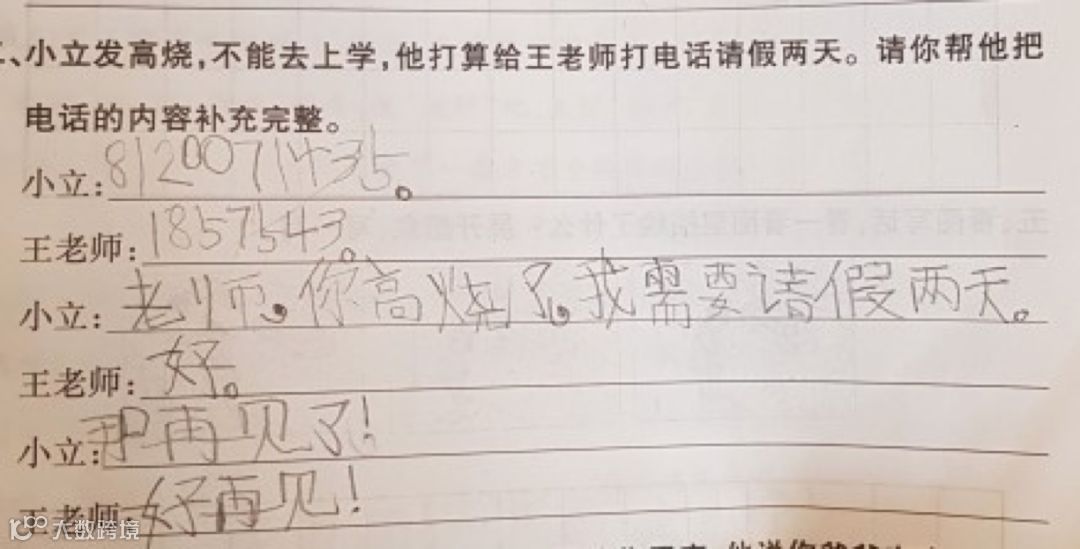 二、小立发高烧,不能去上学,他打算给王老师打电话请假两天。请你帮他把
电话的内容补充完整。
小立:81200711435。
王老师:1857543。
小立:老师。你高烧了。我需要请假两天。
王老师:好。
小立:那再见了!
王老师:好再见!
大数跨境